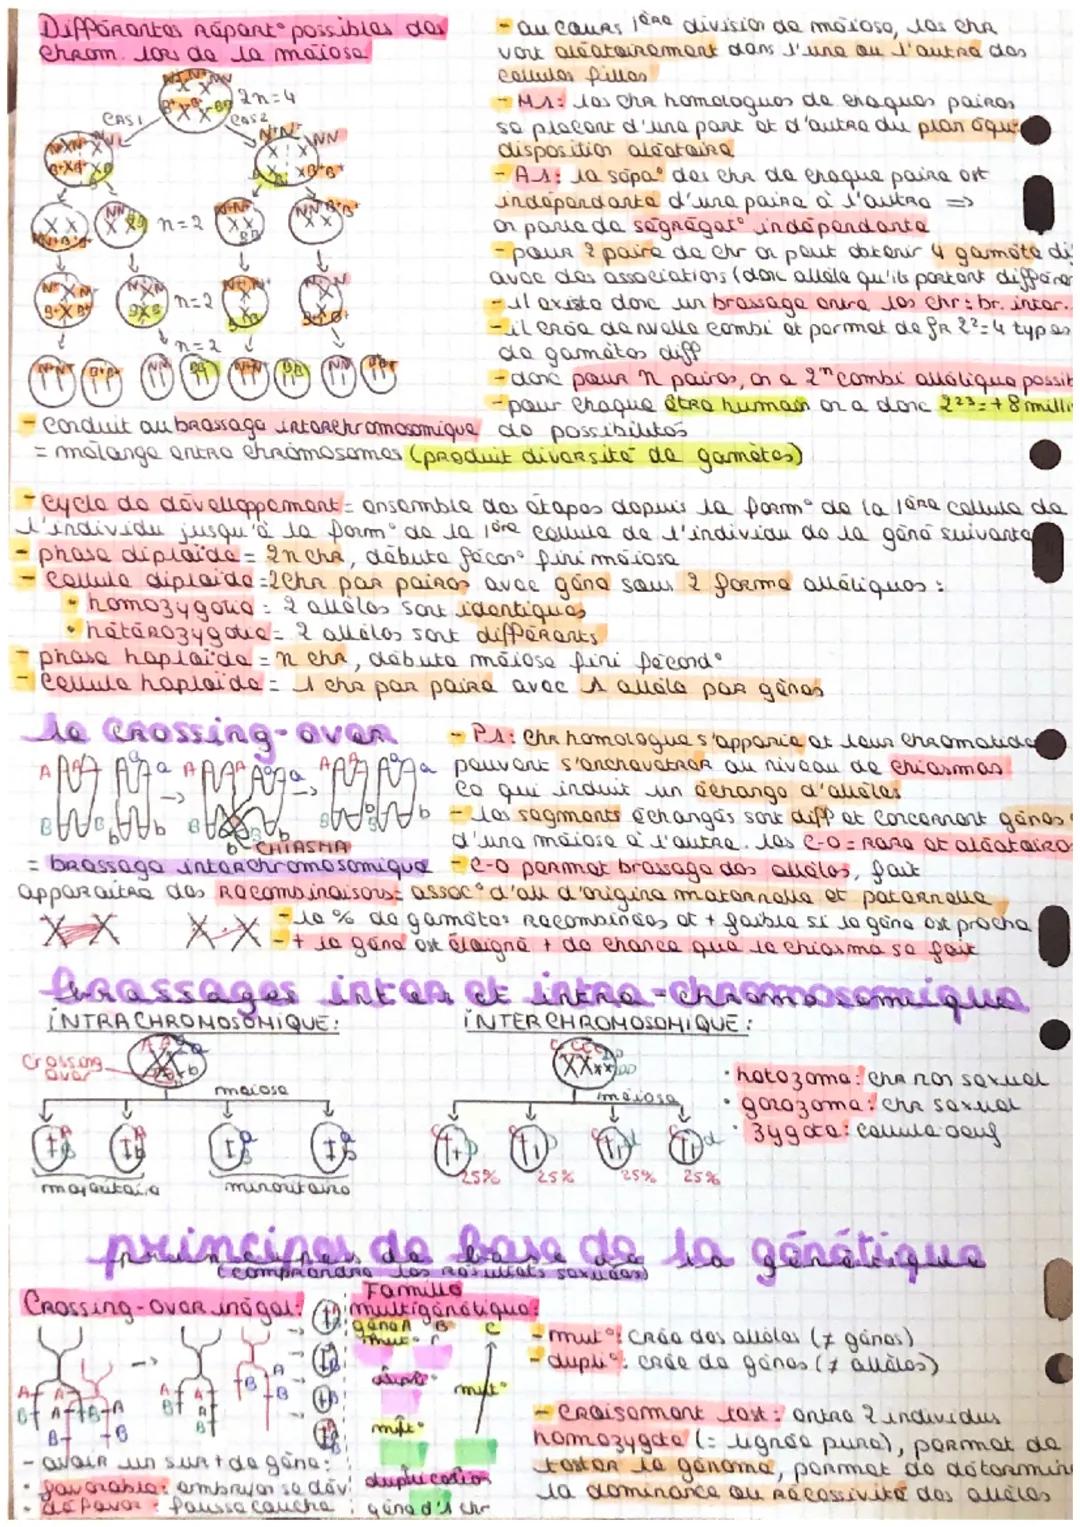 Différentes répart° possibles des
chrom. lors de la méiose
2n=4
CAS 1
CAS 2
n=2
n=2
n=2
- conduit au brassage interchromosomique
= mélange entre chromosomes (produit diversité de gamètes)
- au cours 1ère division de méiose, les chr
vont aléatoirement dans l'une ou l'autre des
cellules filles
- M1: les chr homologues de chaques paires
se placent d'une part et d'autre du plan équ
disposition aléatoire
- A1: la sépa° des chr de chaque paire est
indépendante d'une paire à l'autre =>
on parle de ségrégat° indépendante
- pour 2 paire de chr on peut obtenir 4 gamète di
avec des associations (donc allèle qu'ils portent différen
- il existe donc un brassage entre les chr: br. inter.
- il crée de nvelle combi et permet de fr 2²=4 types
de gamètes diff
- donc pour n paires, on a 2ⁿ combi allélique possib
- pour chaque être humain on a donc 2²³=+8 milli
de possibilités
- cycle de dévelloppement = ensemble des étapes depuis la form° de la 1ère cellule de
l'individu jusqu'à la form° de la 1ère cellule de l'individu de la géné suivante
- phase diploïde = 2n chr, débute fécon° fini méiose
- cellule diploïde = 2chr par paires avec gène sous 2 forme alléliques :
• homozygotie = 2 allèles sont identiques
• hétérozygotie = 2 allèles sont différents
- phase haploïde = n chr, débute méiose fini fécond°
- cellule haploïde = 1 chr par paire avec 1 allèle par gènes
le crossing-over
CHIASMA
= brassage intarchromosomique
- P1: chr homologue s'apparie et leur chromatide
peuvent s'enchevetrer au niveau de chiasmas
ce qui induit un échange d'allèles
- les segments échangés sont diff et concernent gènes
d'une méiose à l'autre. les C-O = rare et aléatoire
- C-O permet brassage des allèles, fait
apparaitre des recombinaisons = assoc° d'all d'origine maternelle et paternelle
- le % de gamètes recombinées et + faible si le gène est proche
- + le gène est éloigné + de chance que le chiasma se fait
brassages inter et intra-chromosomique
INTRACHROMOSOMIQUE:
Crossing
over
méiose
majoritaire
minoritaire
INTERCHROMOSOMIQUE:
méiose
25% 25% 25% 25%
• hétozome: chr non sexuel
• gozozome: chr sexuel
• zygote: cellule oeuf
principes de base de la génétique
(comprendre les résultats sexuées)
Crossing-over inégal:
- avoir un sur+ de gène:
• favorable: embryon se dév
• défavor: fausse couche
Famille
multigénétique:
gène A B C
mut°
dupli°
mut°
mut°
duplication
gène d'1 chr
- mut°: crée des allèles (≠ gènes)
- dupli°: crée de gènes (≠ allèles)
- Croisement test: entre 2 individus
homozygote (= lignée pure), permet de
tester le génome, permet de détermine
la dominance ou récessivité des allèles